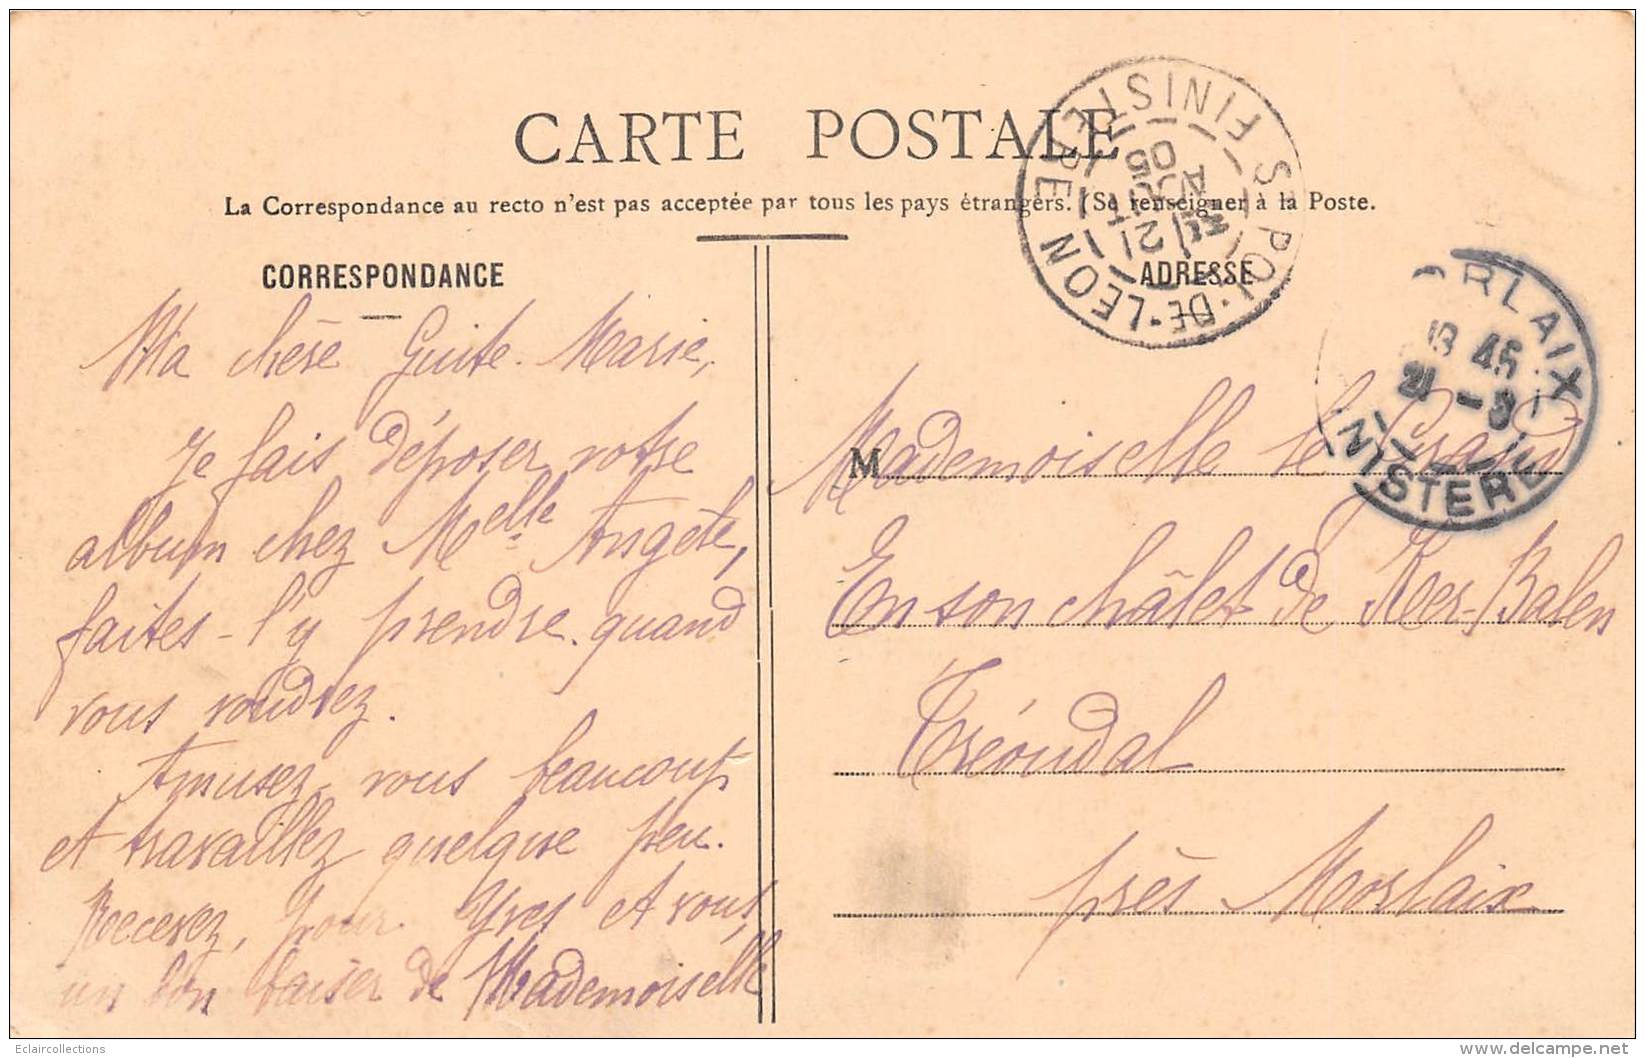 CARTE POSTALE
La Correspondance au recto n'est pas acceptée par tous les pays étrangers. (Se renseigner à la Poste.
CORRESPONDANCE
Ma chère Guite-Marie,
Je fais déposer votre
album chez Melle Angèle,
faites-l'y prendre quand
vous voudrez.
Amusez-vous beaucoup
et travaillez quelque peu.
Recevez, pour Yves et vous,
un bon baiser de Mademoiselle
ADRESSE
M Mademoiselle le Grand
En son châlet de Ker-Balen
Tréoudal
près Morlaix
ST POL-DE-LEON FINISTERE
21
AOUT
05
ORLAIX
18 45
21 -8
INISTERE
Eclaircollections
delcampe.net